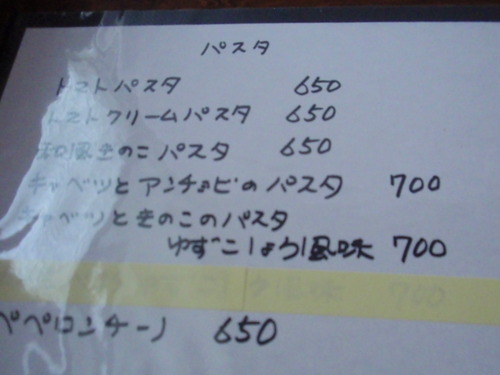 パスタ
トマトパスタ 650
トマトクリームパスタ 650
和風きのこパスタ 650
キャベツとアンチョビのパスタ 700
キャベツときのこのパスタ
ゆずこしょう風味 700
700
ペペロンチーノ 650